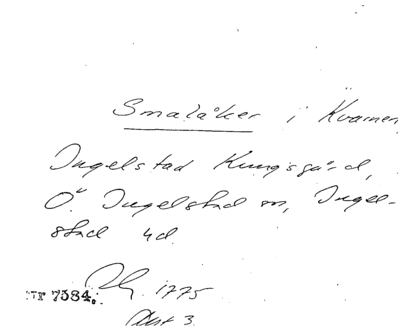 Smalåker i Kvarnen
Ingelstad Kungsgård,
Ö. Ingelstad sn, Ingel-
stad hd
7384. 1775
Akt 3